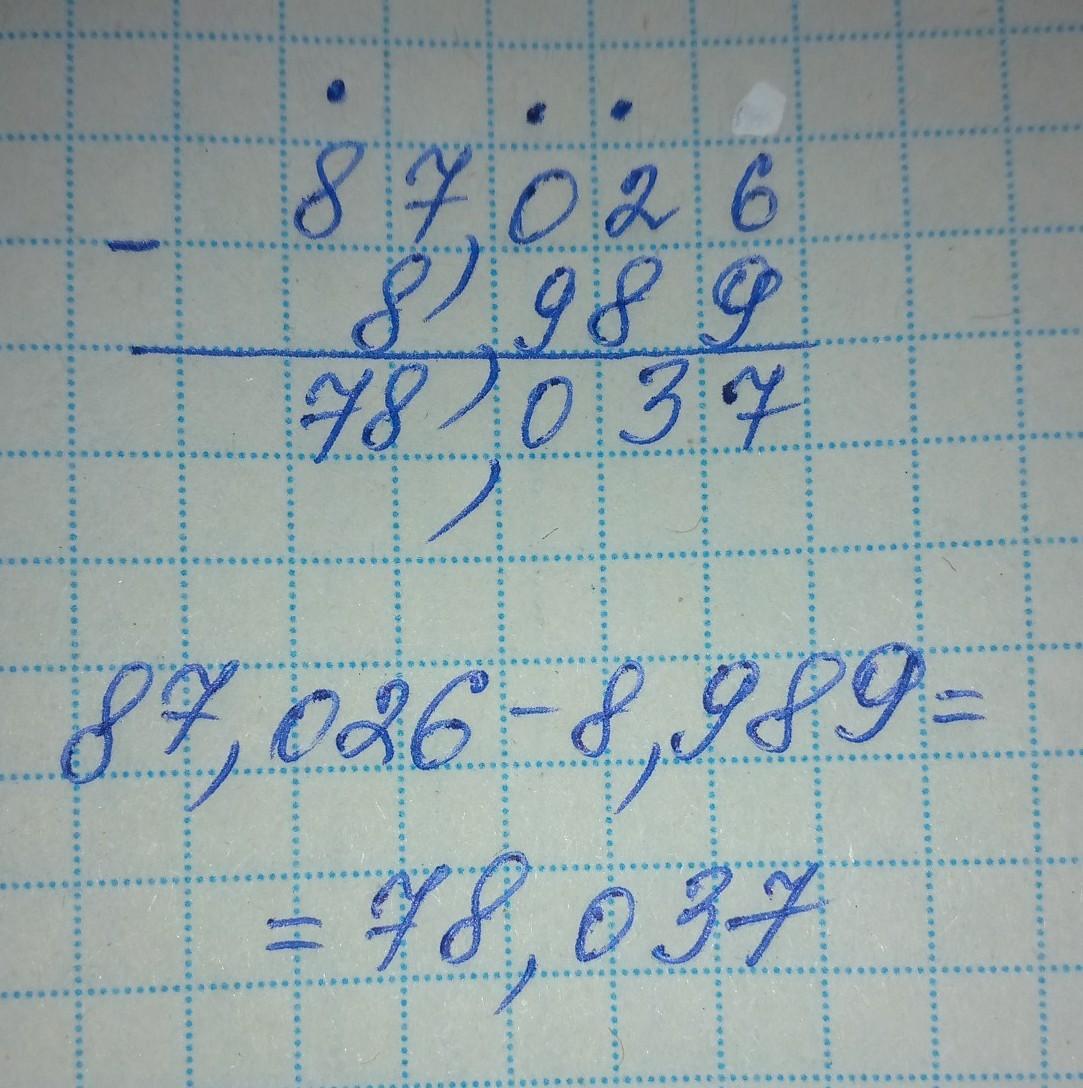 87,026
-
8,989
78,037
,
87,026-8,989=
=78,037